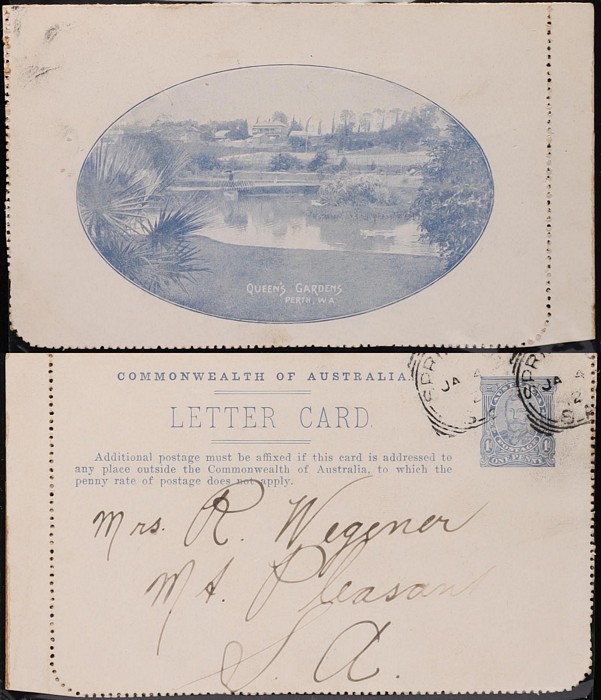 QUEEN'S GARDENS
PERTH, W.A.
COMMONWEALTH OF AUSTRALIA.
LETTER CARD.
Additional postage must be affixed if this card is addressed to
any place outside the Commonwealth of Australia, to which the
penny rate of postage does not apply.
SPRI
JA 4
12
S.A
SPR
JA 4
12
S.A
POSTAGE
ONE PENNY
Mrs. R. Wegener
Mt. Pleasant
S. A.